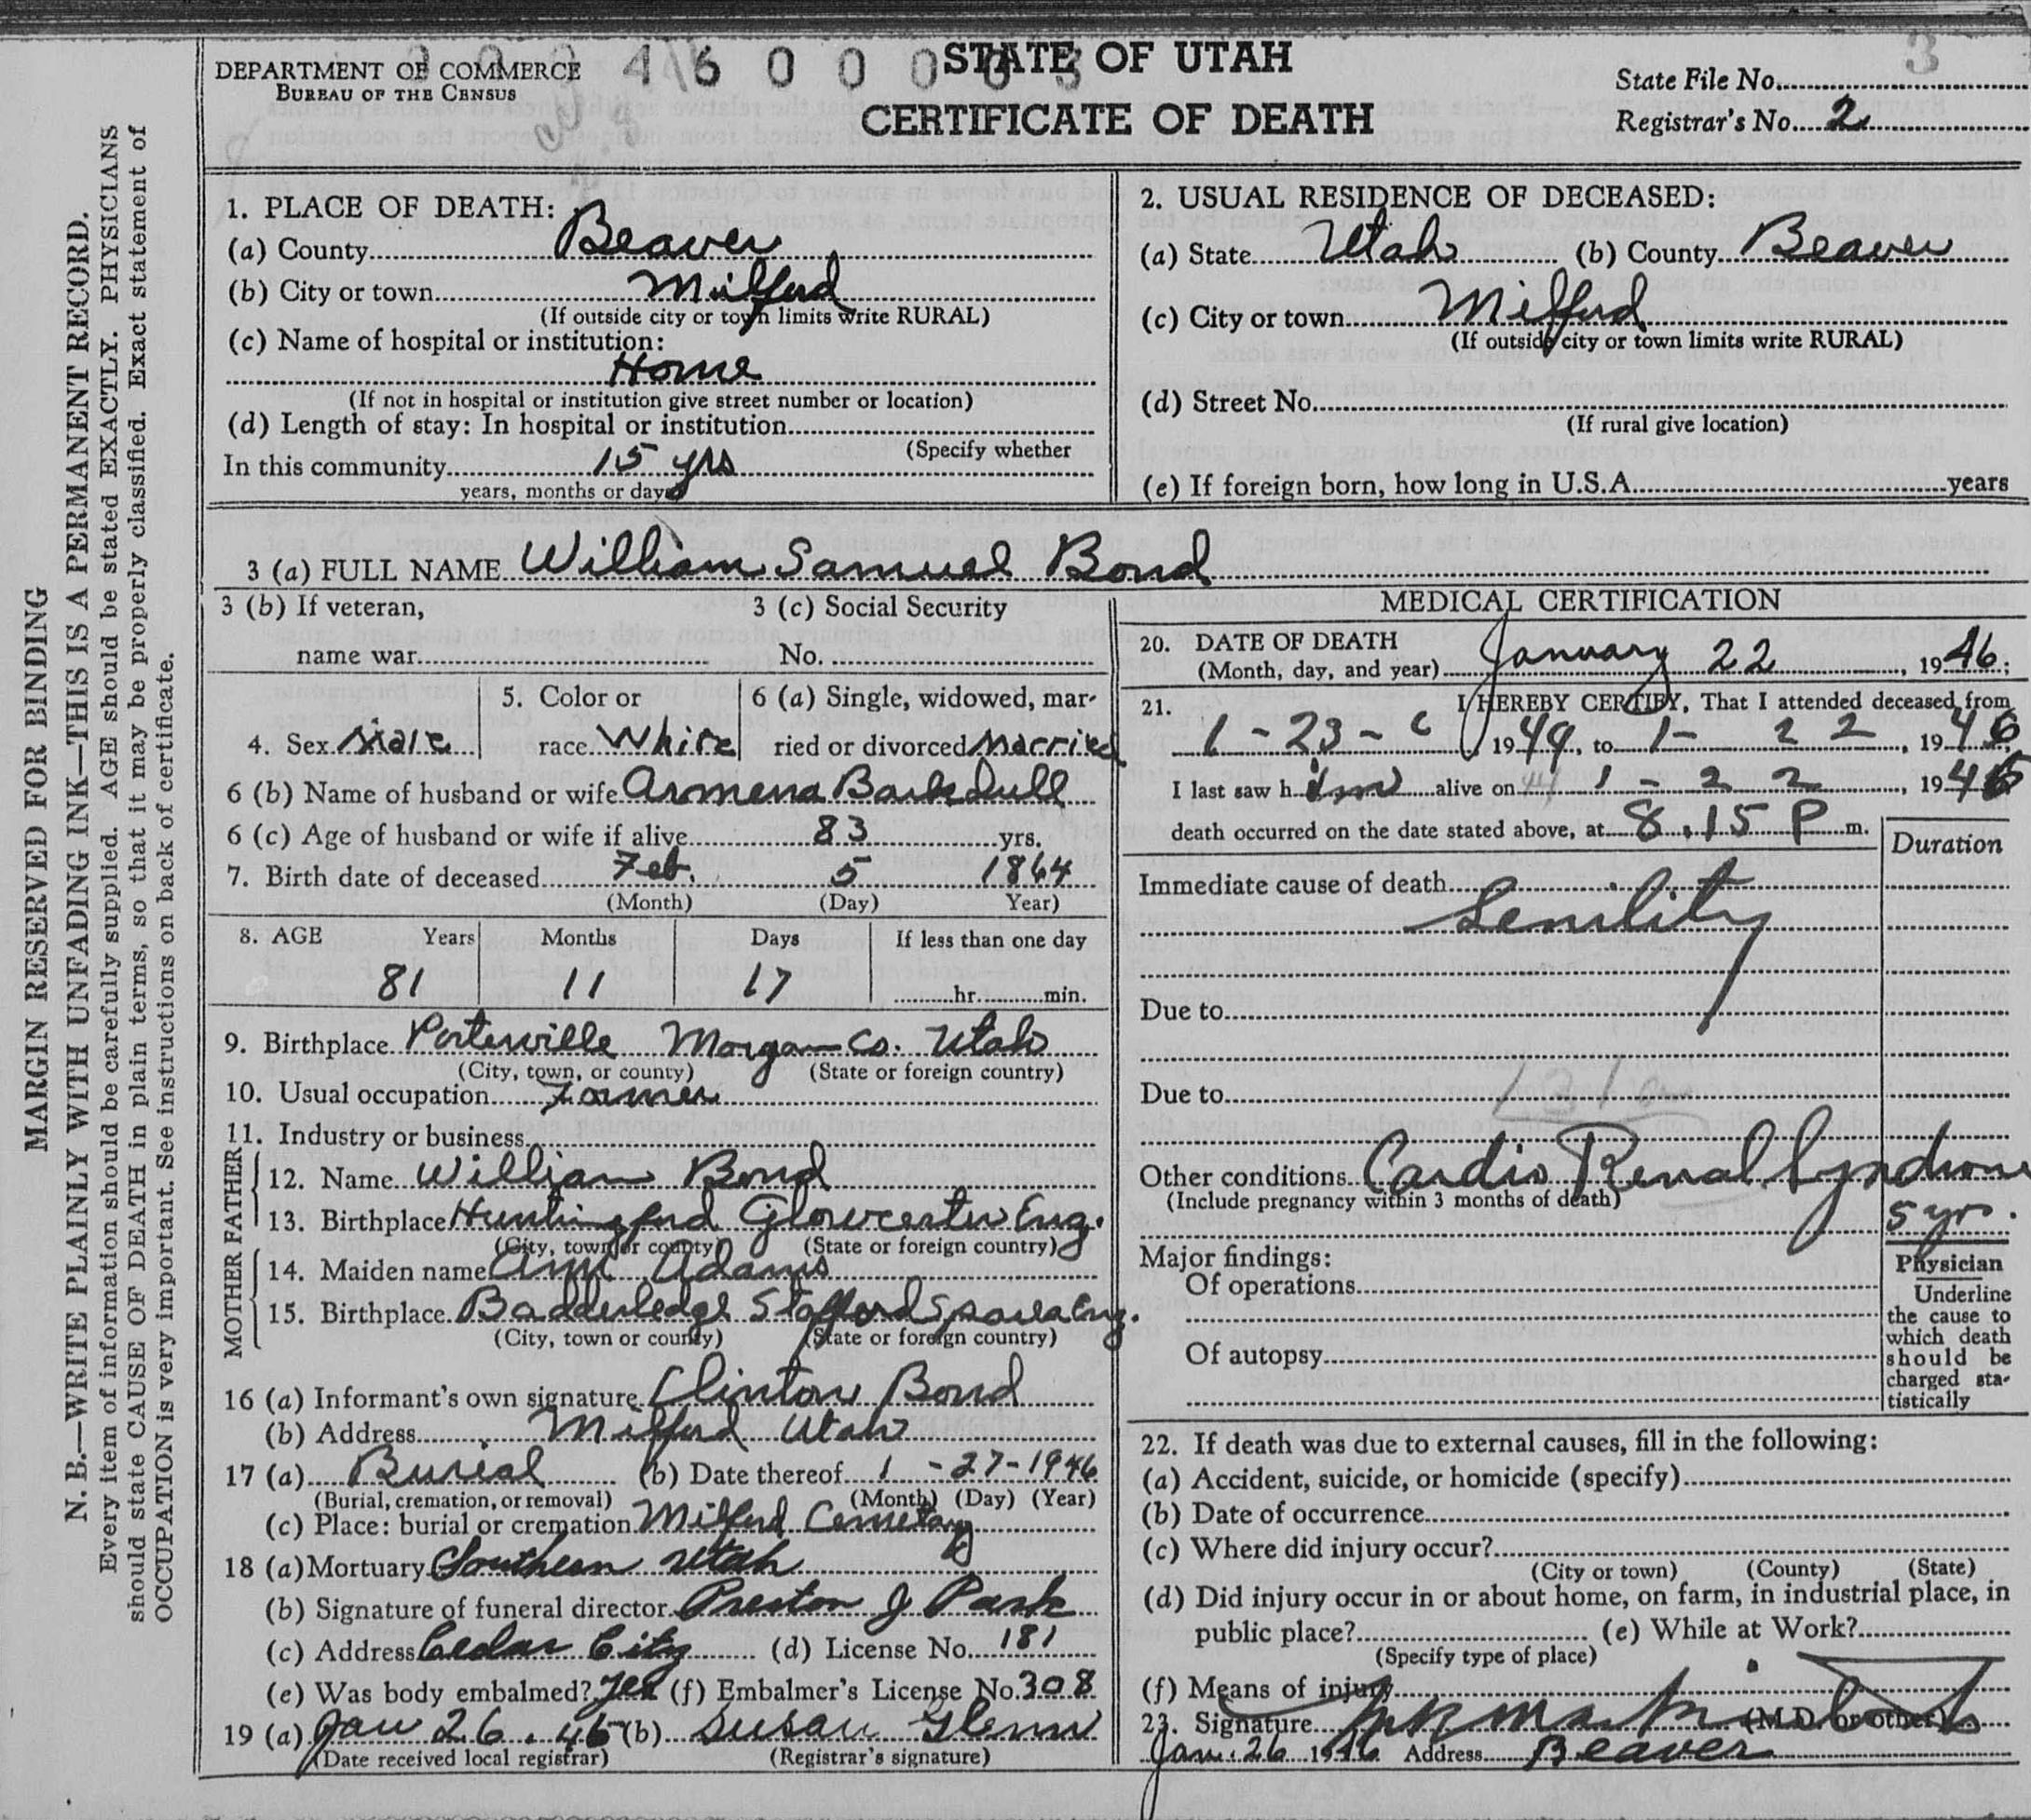 STATE OF UTAH
CERTIFICATE OF DEATH
DEPARTMENT OF COMMERCE
BUREAU OF THE CENSUS
State File No. 3
Registrar's No. 2
MARGIN RESERVED FOR BINDING
N. B.—WRITE PLAINLY WITH UNFADING INK—THIS IS A PERMANENT RECORD.
Every item of information should be carefully supplied. AGE should be stated EXACTLY. PHYSICIANS
should state CAUSE OF DEATH in plain terms, so that it may be properly classified. Exact statement of
OCCUPATION is very important. See instructions on back of certificate.
1. PLACE OF DEATH:
(a) County Beaver
(b) City or town Milford
(If outside city or town limits write RURAL)
(c) Name of hospital or institution:
Home
(If not in hospital or institution give street number or location)
(d) Length of stay: In hospital or institution
(Specify whether
In this community 15 yrs
years, months or days)
2. USUAL RESIDENCE OF DECEASED:
(a) State Utah (b) County Beaver
(c) City or town Milford
(If outside city or town limits write RURAL)
(d) Street No.
(If rural give location)
(e) If foreign born, how long in U.S.A. years
3 (a) FULL NAME William Samuel Bond
3 (b) If veteran, 3 (c) Social Security
name war No.
4. Sex Male 5. Color or race White 6 (a) Single, widowed, married or divorced Married
6 (b) Name of husband or wife Armena Barkdull
6 (c) Age of husband or wife if alive 83 yrs.
7. Birth date of deceased Feb. 5 1864
(Month) (Day) Year)
8. AGE Years Months Days If less than one day
81 11 17 hr. min.
9. Birthplace Porterville Morgan Co. Utah
(City, town, or county) (State or foreign country)
10. Usual occupation Farmer
11. Industry or business
FATHER
12. Name William Bond
13. Birthplace Huntingford Gloucester Eng.
(City, town or county) (State or foreign country)
MOTHER
14. Maiden name Ann Adams
15. Birthplace Stafford Eng.
(City, town or county) (State or foreign country)
16 (a) Informant's own signature Clinton Bond
(b) Address Milford Utah
17 (a) Burial (b) Date thereof 1 - 27 - 1946
(Burial, cremation, or removal) (Month) (Day) (Year)
(c) Place: burial or cremation Milford Cemetary
18 (a) Mortuary Southern Utah
(b) Signature of funeral director Preston J Park
(c) Address Cedar City (d) License No. 181
(e) Was body embalmed? Yes (f) Embalmer's License No. 308
19 (a) Jan 26. 46 (b) Susan Glenn
(Date received local registrar) (Registrar's signature)
MEDICAL CERTIFICATION
20. DATE OF DEATH
(Month, day, and year) January 22, 1946;
21. I HEREBY CERTIFY, That I attended deceased from
1 - 23 - 19 , to 1 - 22, 1946
I last saw him alive on 1 - 22, 1946
death occurred on the date stated above, at 8.15 P m.
Duration
Immediate cause of death
Senility
Due to
Due to
Other conditions Cardio Renal Syndrome
(Include pregnancy within 3 months of death)
5 yrs.
Major findings:
Of operations
Of autopsy
Physician
Underline
the cause to
which death
should be
charged sta-
tistically
22. If death was due to external causes, fill in the following:
(a) Accident, suicide, or homicide (specify)
(b) Date of occurrence
(c) Where did injury occur?
(City or town) (County) (State)
(d) Did injury occur in or about home, on farm, in industrial place, in
public place? (e) While at Work?
(Specify type of place)
(f) Means of injury
23. Signature (M.D. or other)
Jan. 26 1946 Address Beaver